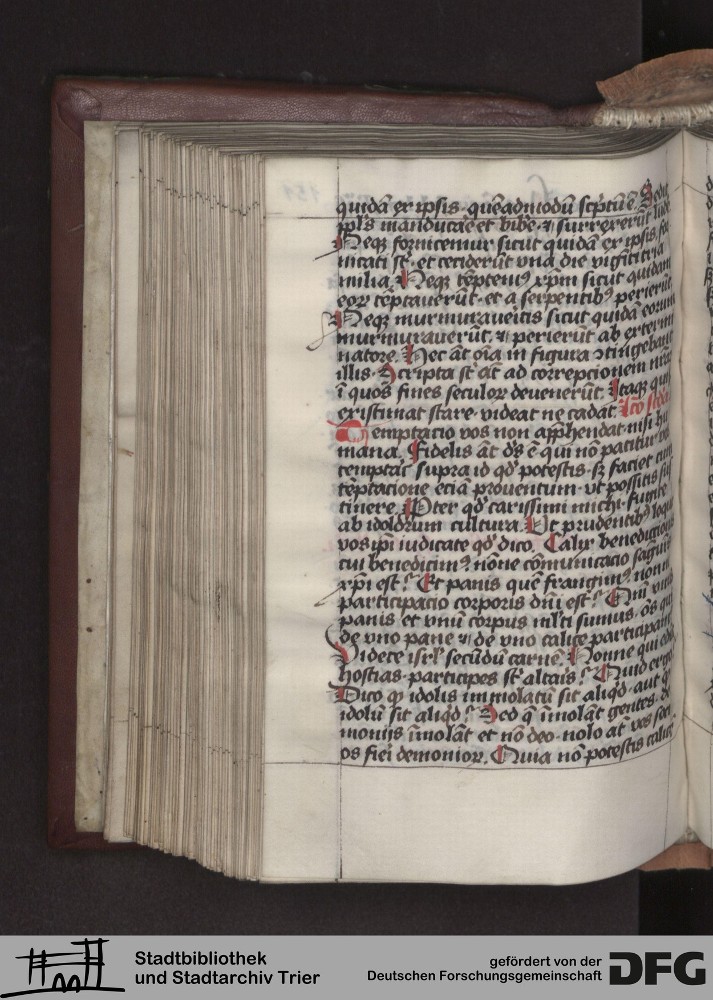 quidā ex ipsis · quēadmodū sc̄ptū ē · Sedit
ppl̄s manducāe et bibe⁊ · ⁊ surrexerūt lude
Neqȝ fornicemur sicut quidā ex ipsis for
nicati st̄ · et ceciderūt vna die vigīti tria
milia. Neqȝ tēptemꝰ xp̄m sicut quidam
eoꝝ tēptauerūt · et a serpentibꝰ perierūt
Neqȝ murmuraueritis sicut quidā eorum
murmurauerūt · ⁊ perierūt ab extermi
natore. Hec āt oīa in figura ↄtingebant
illis · Scripta st̄ āt ad correpcionem nr̄ā
ī quos fines seculoꝝ deuenerūt. Itaqȝ qui
existimat stare · videat ne cadat.
Temptacio vos non app̄hendat · nisi hu
mana. Fidelis āt ds̄ ē qui nō patitur vos
temptar̄ supra id qd̄ potestis · sȝ faciet cum
tēptacione eciā prouentum · vt possitis sus
tinere. Pter qd̄ carissimi michi · fugite
ab idoldrum cultura. Ut prudentibꝰ loqr
vos ip̄i iudicate qd̄ dico. Calix benedictionis
cui benedicimꝰ · nōne cōmunicacio sāguīs
xp̄i est? Et panis quē frangimꝰ · nōnn
participacio corporis dn̄i est? Qm̄ vnus
panis et vnū corpus mlti sumus · oēs qui
de vno pane ⁊ de vno calice participam
Videte isrl̄ secūdū carnē. Nonne qui edūt
hostias · participes st̄ altaris? Quid ergo
Dico qꝫ idolis immolatū sit aliqd̄ · aut qꝫ
idolū sit aliqd̄? Sed q̄ īmolāt gentes · de
monijs īmolāt et nō deo · nolo āt vos soci
os fieī demonioꝝ. Quia nō potestis calicē
Stadtbibliothek
und Stadtarchiv Trier
gefördert von der
Deutschen Forschungsgemeinschaft
DFG